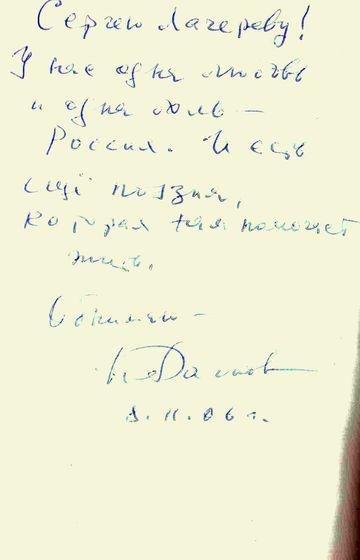 Сергею Лагереву!
У нас одна любовь
и одна боль —
Россия. И есть
ещё поэзия,
которая нам помогает
жить.
Обнимаю —
8.11.06 г.